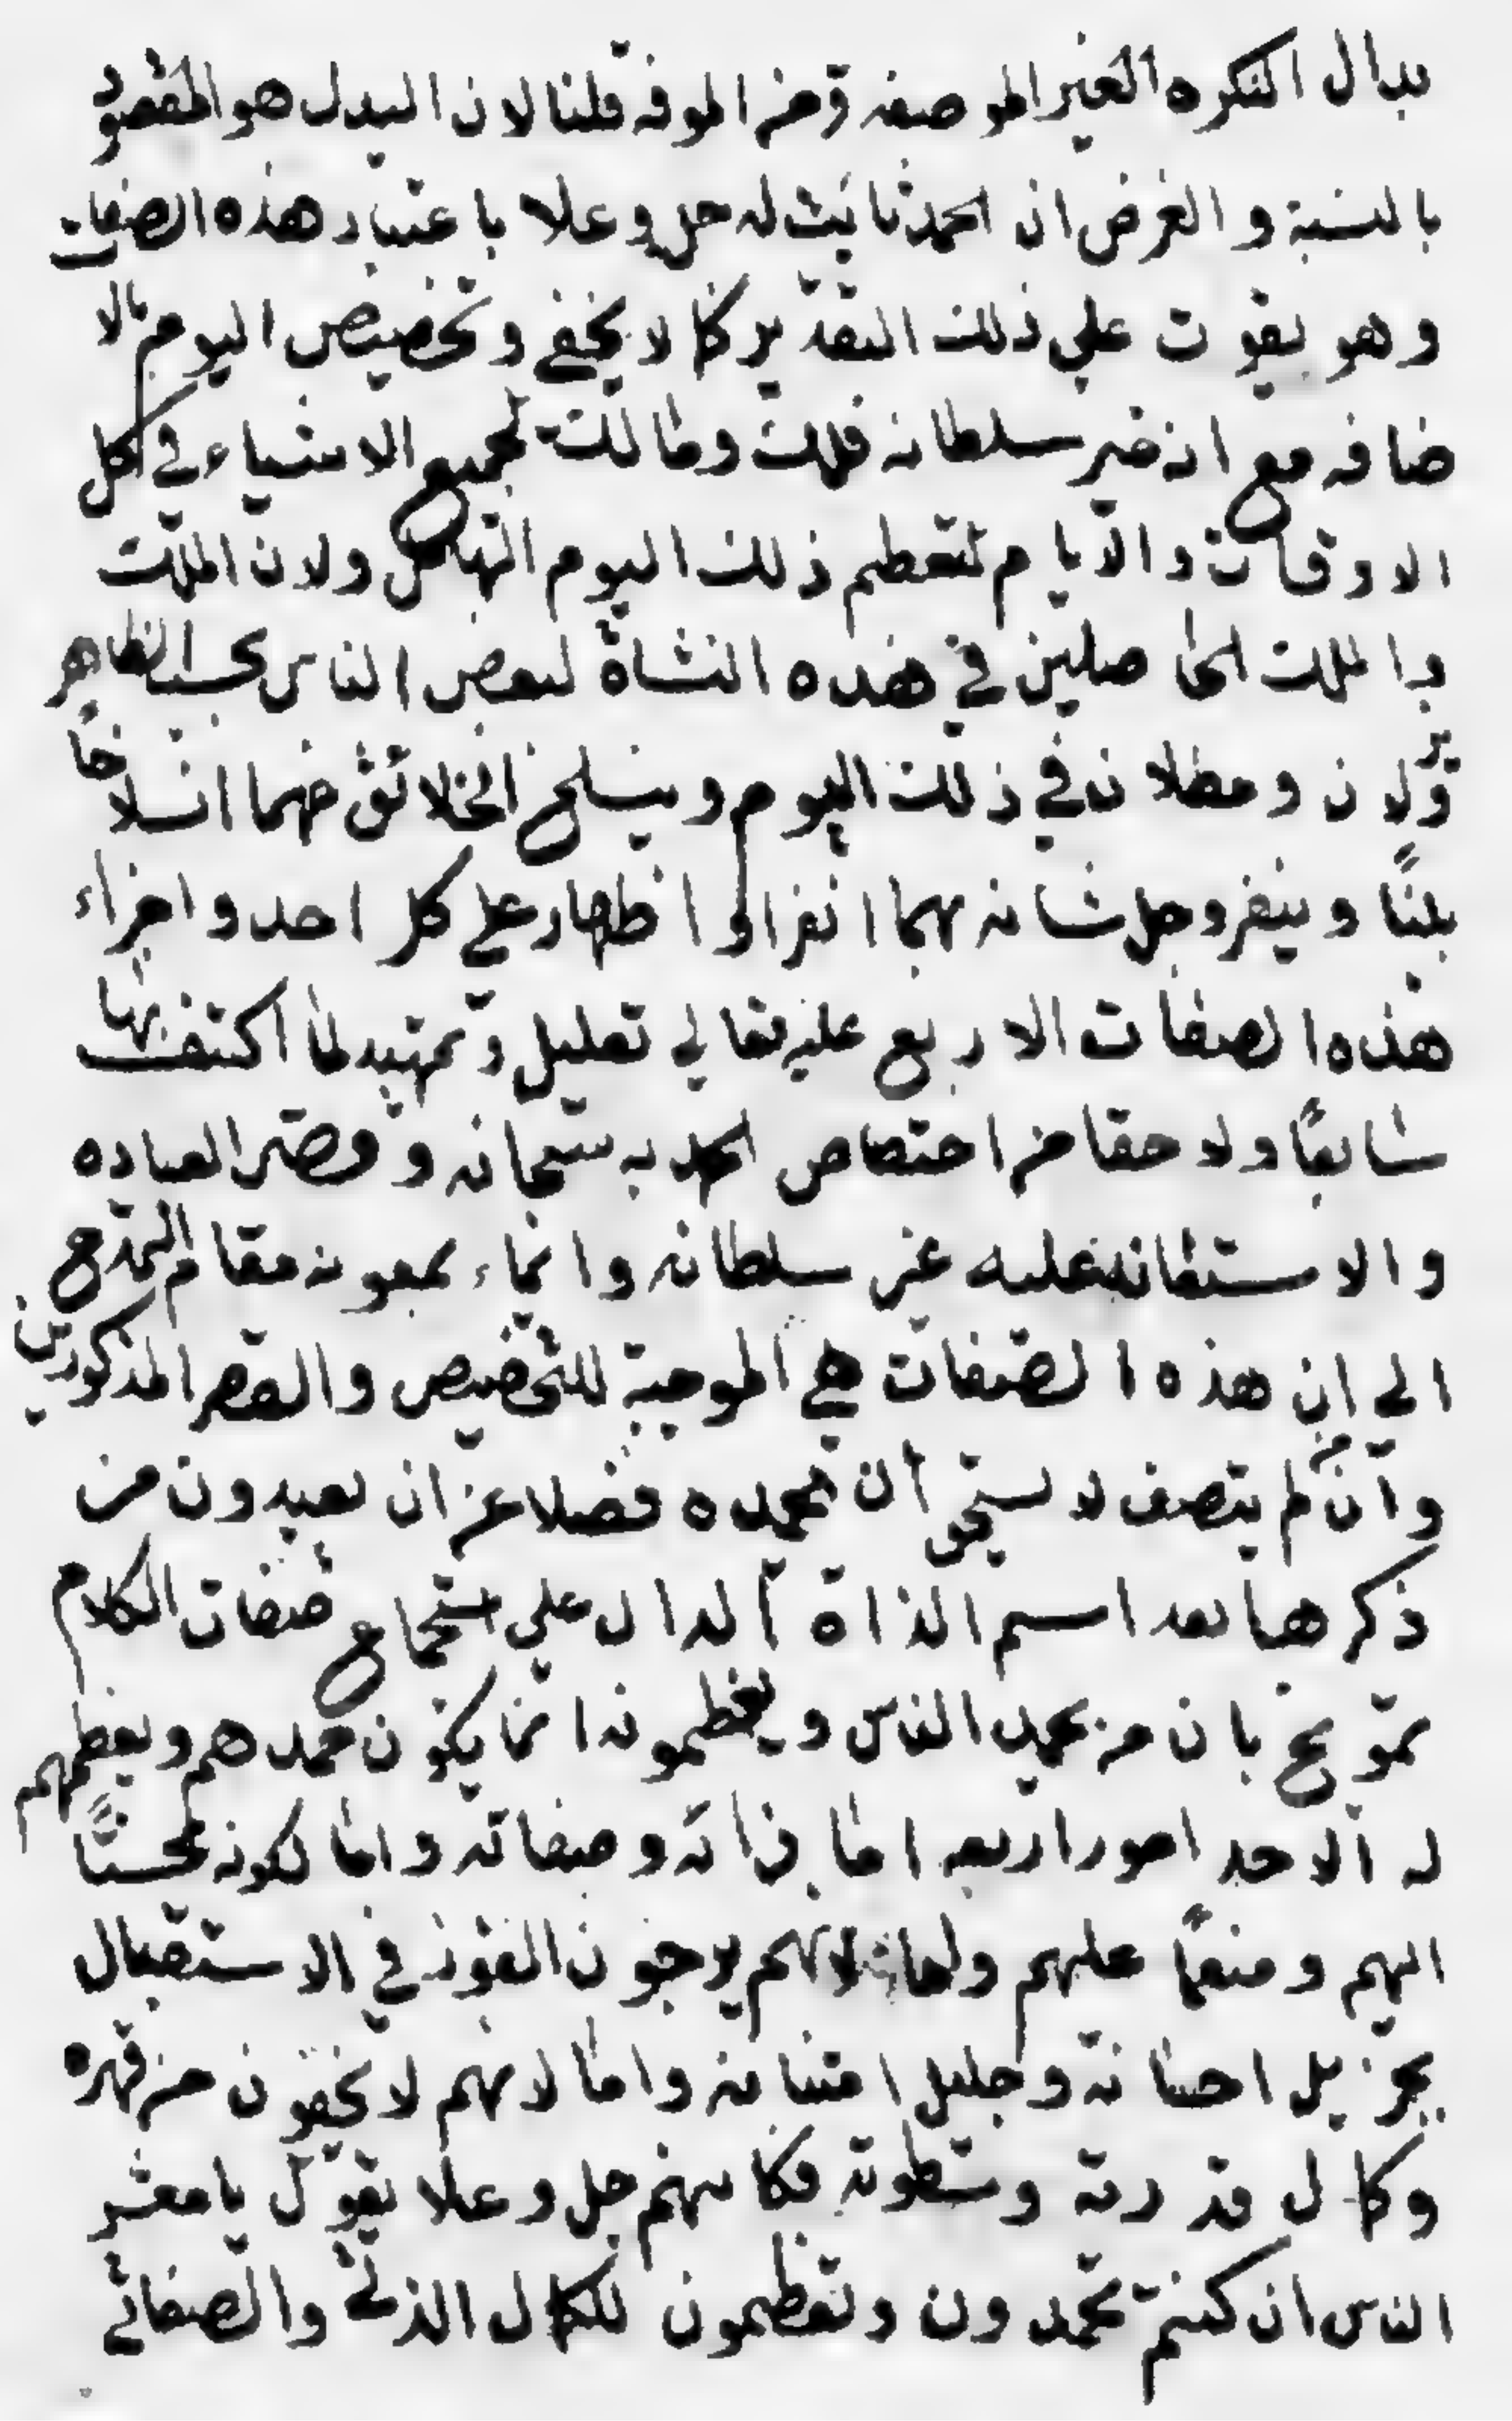 بدال النكره الغير الموصفه من المعرفه قلنا لان البدل هو المقصود
بالنسبة و الغرض ان الحمد ثابت له جل و علا باعتبار هذه الصفات
و هو يفوت علي ذلك التقدير كما لا يخفي و تخصيص اليوم بالا
ضافه مع انه سلطانه ملك و مالك لجميع الاشياء في كل
الاوقات و الايام لتعظيم ذلك اليوم الهائل و لان الملك
و الملك الحاصلين في هذه النشاة لبعض الناس بحسب الظاهر
يزولان و يبطلان في ذلك اليوم و ينسلخ الخلائق عنهما انسلاخاً
بيناً و ينفرد جل شانه بهما انفرادا ظهار علي كل احد و اجراء
هذه الصفات الاربع عليه تعالي تعليل و تمهيد لما اكتنف بها
سابقاً و لاحقا من اختصاص الحمد به سبحانه و قصر العباده
و الاستعانه عليه عز سلطانه و ايماء بمعونه مقام التمدح
الي ان هذه الصفات هي الموجبة للتخصيص و القصر المذكورين
و ان من لم يتصف لا يستحق ان نحمده فضلا عن ان يعبد و ان من
ذكرها بعد اسم الذاة الدال علي استجماع صفات الكلام
بان من يحمد الناس و يعظمونه انما يكون حمدهم و يعظمهم
له الاحد امور اربعه اما ذاته و صفاته و اما لكونه محسناً
اليهم و منعماً عليهم و اما لانهم يرجون الفوز في الاستقبال
بجزيل احسانه و جليل امتنانه و اما لانهم لا يخفون من قهره
و كمال قدرته و سطوته فكانهم جل و علا يقول يا معشر
الناس ان كنتم تحمدون و تعظمون للكمال الذاتي و الصفاتي